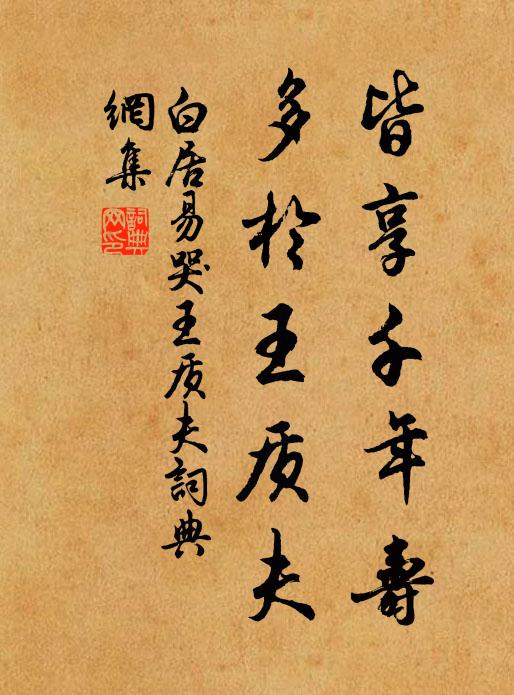 皆享千年壽
多於王质夫
白居易哭王质夫詞典
網集
詞典网印